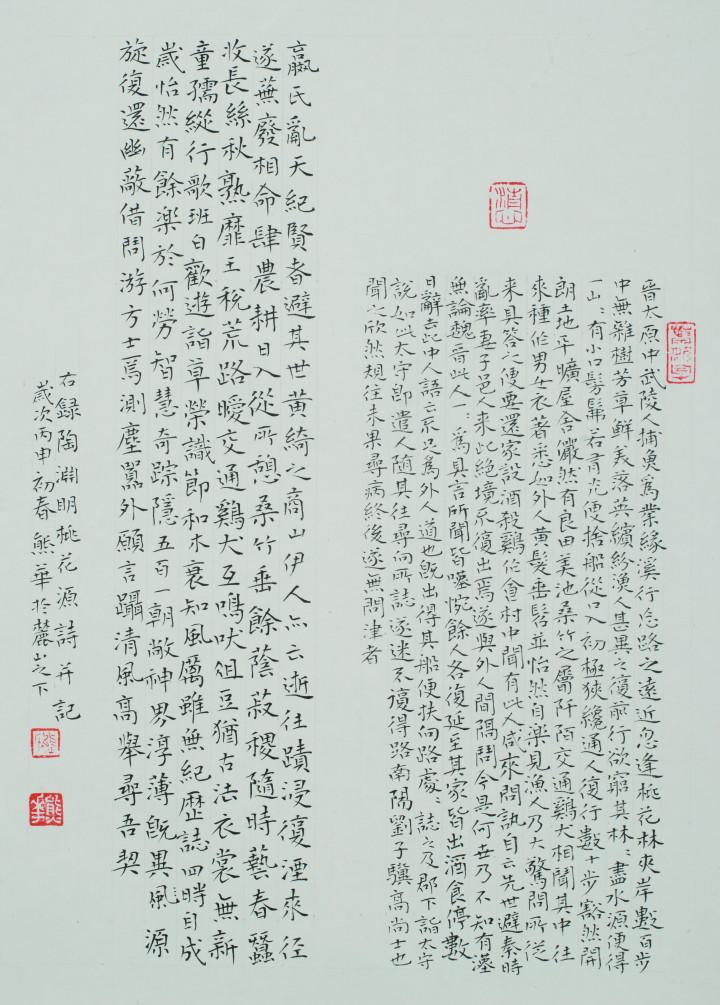 晉太原中武陵人捕魚為業緣溪行忘路之遠近忽逢桃花林夾岸數百步
中無雜樹芳草鮮美落英繽紛漁人甚異之復前行欲窮其林:盡水源便得
一山:有小口髣髴若有光便捨船從口入初極狹纔通人復行數十步豁然開
朗土地平曠屋舍儼然有良田美池桑竹之屬阡陌交通鷄犬相聞其中往
來種作男女衣著悉如外人黃髮垂髫並怡然自樂見漁人乃大驚問所從
來具答之便要還家設酒殺鷄作食村中聞有此人咸來問訊自云先世避秦時
亂率妻子邑人來此絕境不復出焉遂與外人間隔問今是何世乃不知有漢
無論魏晉此人一:為具言所聞皆嘆惋餘人各復延至其家皆出酒食停數
日辭去此中人語云不足為外人道也既出得其船便扶向路處:誌之乃郡下詣太守
說如此太守即遣人隨其往尋向所誌遂迷不復得路南陽劉子驥高尚士也
聞之欣然規往未果尋病終後遂無問津者
嬴氏亂天紀賢者避其世黃綺之商山伊人亦云逝往蹟浸復湮來徑
遂蕪廢相命肆農耕日入從所憩桑竹垂餘蔭菽稷隨時藝春蠶
收長絲秋熟靡王稅荒路曖交通鷄犬互鳴吠俎豆猶古法衣裳無新
童孺縱行歌班白歡遊詣草榮識節和木衰知風厲雖無紀歷誌四時自成
歲怡然有餘樂於何勞智慧奇踪隱五百一朝敞神界淳薄既異風源
旋復還幽蔽借問游方士焉測塵囂外願言躡清風高舉尋吾契
右錄陶淵明桃花源詩并記
歲次丙申初春熊華於麓山之下